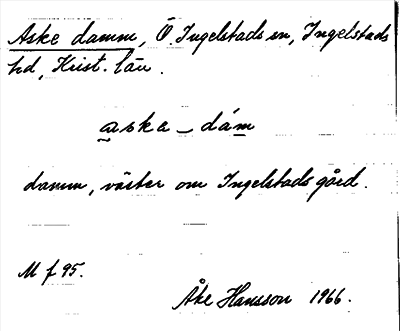 Aske damm, Ö. Ingelstads sn, Ingelstads
hd, Krist. län.
aska – dám
damm, väster om Ingelstads gård.
M f 95.
Åke Hansson 1966.